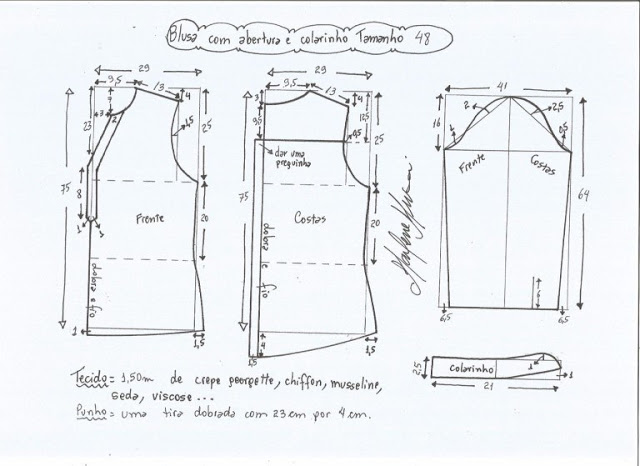 Blusa com abertura e colarinho Tamanho 48
29
9,5
13
4
7
3
2
23
1,5
25
8
75
1
1
Frente
20
dobra e fio
1
1,5
29
9,5
13
4
3
9,5
12,5
0,5
dar uma preguinha
25
75
Costas
20
dobra e fio
4
1,5
1,5
41
16
2
2,5
1
0,5
Frente
Costas
64
6
6,5
6,5
2,5
colarinho
1
1
21
Tecido = 1,50m de crepe georgette, chiffon, musseline,
seda, viscose...
Punho = uma tira dobrada com 23 cm por 4 cm.